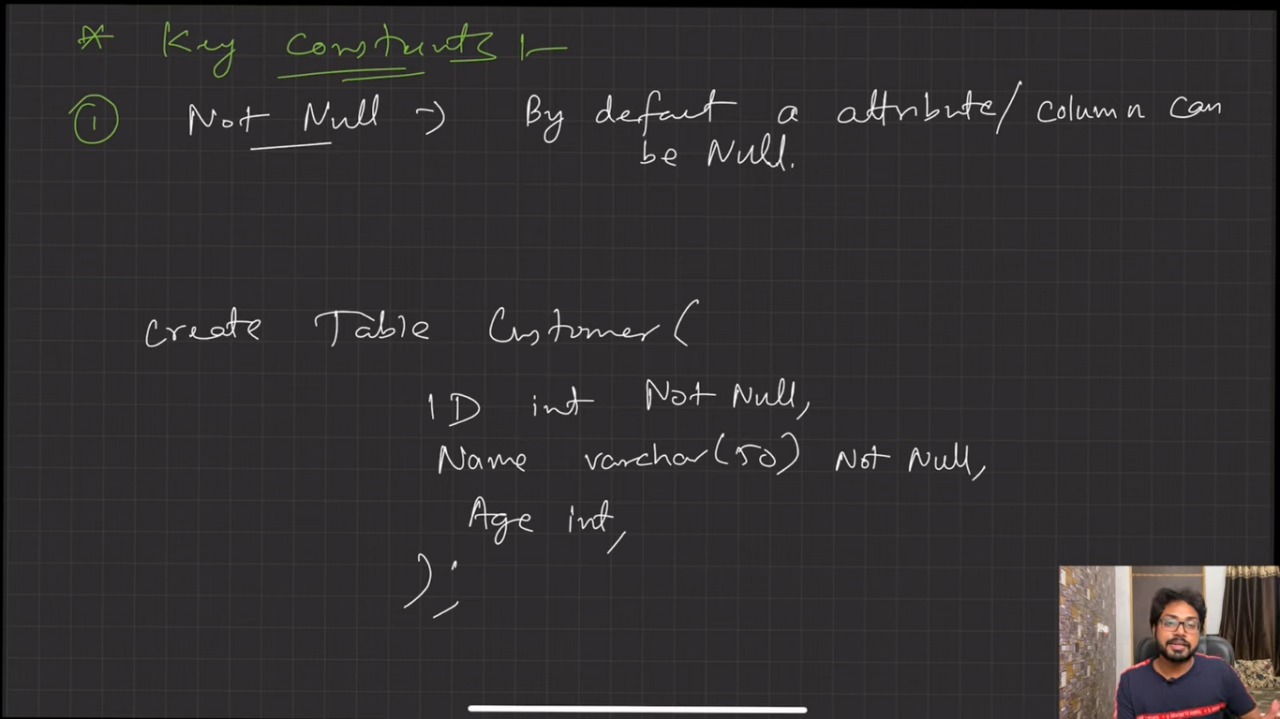 * Key constunts :-
① Not Null → By defaut a attribute/ column can
be Null.
create Table Customer(
ID int Not Null,
Name varchar(50) Not Null,
Age int,
);